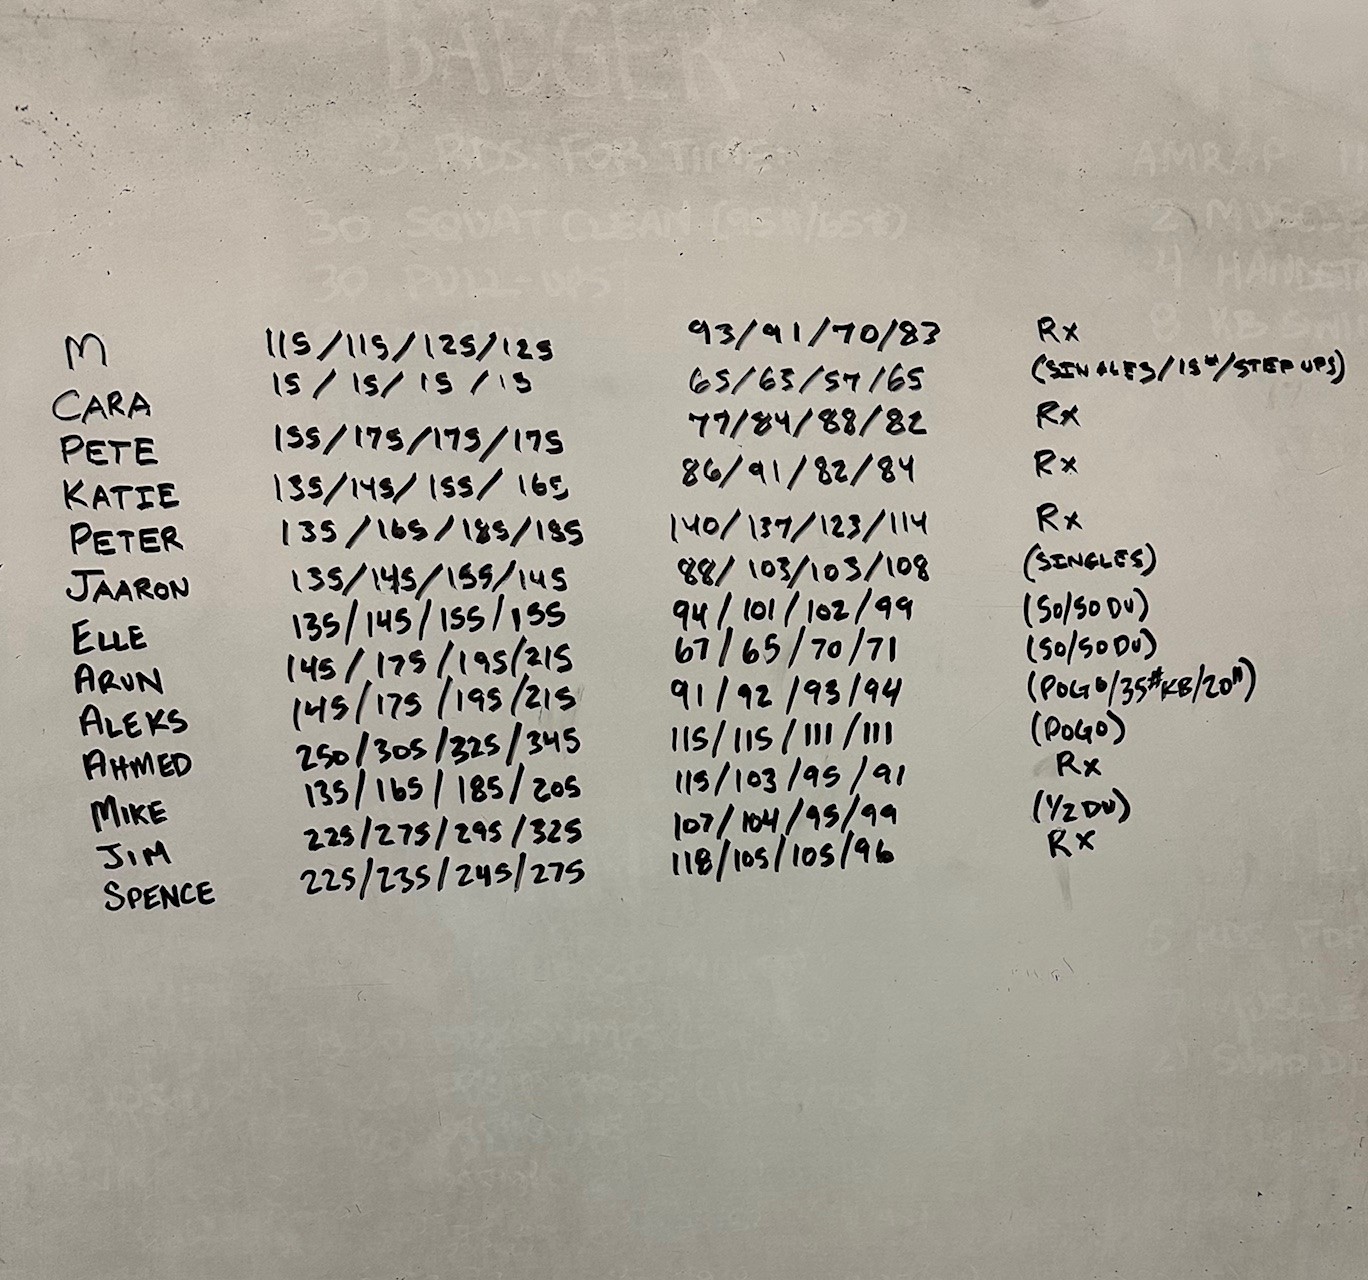 BADGER
3 RDS. FOR TIME:
30 SQUAT CLEAN (95#/65#)
30 PULL-UPS
AMRAP
2
4
8 KB
M 115/115/125/125 93/91/70/83 Rx
CARA 15/15/15/15 65/63/57/65 (SINGLES/15#/STEP UPS)
PETE 155/175/175/175 77/84/88/82 Rx
KATIE 135/145/155/165 86/91/82/84 Rx
PETER 135/165/185/185 140/137/123/114 Rx
JAARON 135/145/155/145 88/103/103/108 (SINGLES)
ELLE 135/145/155/155 94/101/102/99 (50/50 DU)
ARUN 145/175/195/215 67/65/70/71 (50/50 DU)
ALEKS 145/175/195/215 91/92/93/94 (POGO/35#KB/20")
AHMED 250/305/325/345 115/115/111/111 (POGO)
MIKE 135/165/185/205 115/103/95/91 Rx
JIM 225/275/295/325 107/104/95/99 (1/2 DU)
SPENCE 225/235/245/275 118/105/105/96 RX